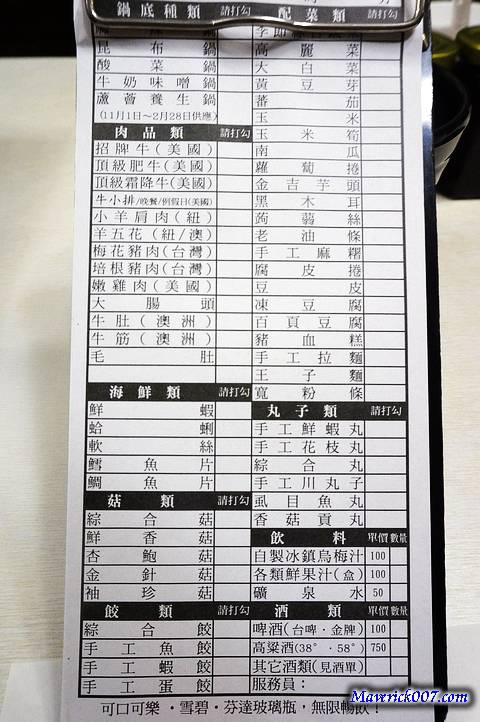 鍋底種類 請打勾
昆布鍋
酸菜鍋
牛奶味噌鍋
蘆薈養生鍋
(11月1日~2月28日供應)
肉品類 請打勾
招牌牛(美國)
頂級肥牛(美國)
頂級霜降牛(美國)
牛小排/晚餐/例假日(美國)
小羊肩肉(紐)
羊五花(紐/澳)
梅花豬肉(台灣)
培根豬肉(台灣)
嫩雞肉(美國)
大腸頭
牛肚(澳洲)
牛筋(澳洲)
毛肚
海鮮類 請打勾
鮮蝦
蛤蜊
軟絲
鱈魚片
鯛魚片
菇類 請打勾
綜合菇
鮮香菇
杏鮑菇
金針菇
袖珍菇
餃類 請打勾
綜合餃
手工魚餃
手工蝦餃
手工蛋餃
配菜類 請打勾
高麗菜
大白菜
黃豆芽
蕃茄
玉米
玉米筍
南瓜
蘿蔔捲
金吉芋頭
黑木耳
蒟蒻絲
老油條
手工麻糬
腐皮捲
豆皮
凍豆腐
百頁豆腐
豬血糕
手工拉麵
王子麵
寬粉條
丸子類 請打勾
手工鮮蝦丸
手工花枝丸
綜合丸
手工川丸子
虱目魚丸
香菇貢丸
飲料 單價 數量
自製冰鎮烏梅汁 100
各類鮮果汁(盒) 100
礦泉水 50
酒類 單價 數量
啤酒(台啤·金牌) 100
高粱酒(38°·58°) 750
其它酒類(見酒單)
服務員：
可口可樂·雪碧·芬達玻璃瓶，無限暢飲！
Mavrick007.com